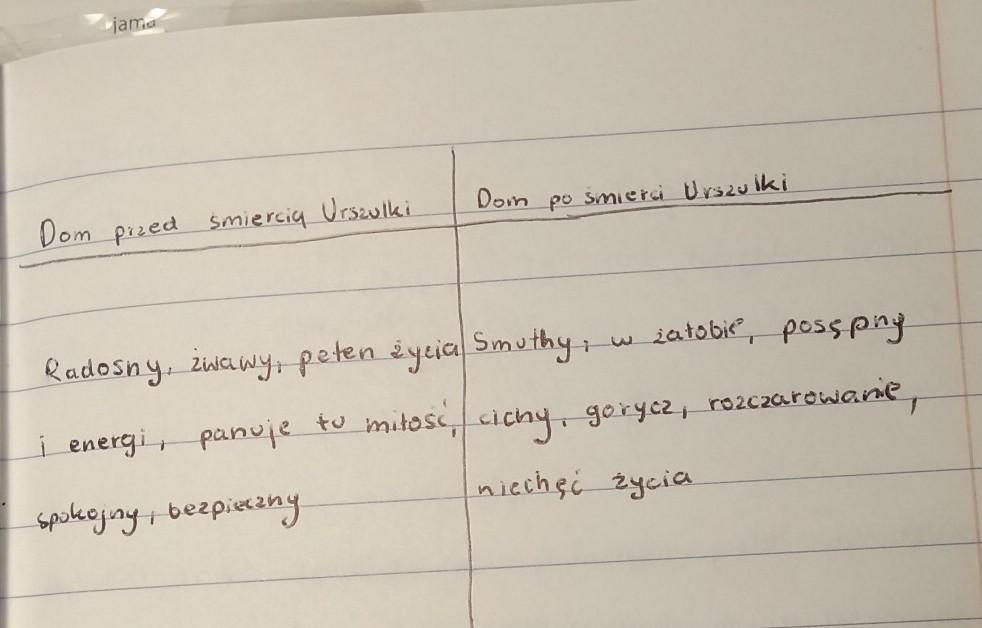 jama
Dom przed śmiercią Urszulki
Dom po śmierci Urszulki
Radosny, żwawy, pełen życia
i energi, panuje tu miłość,
spokojny, bezpieczny
Smutny, w żałobie, posępny
cichy, gorycz, rozczarowanie,
niechęć życia